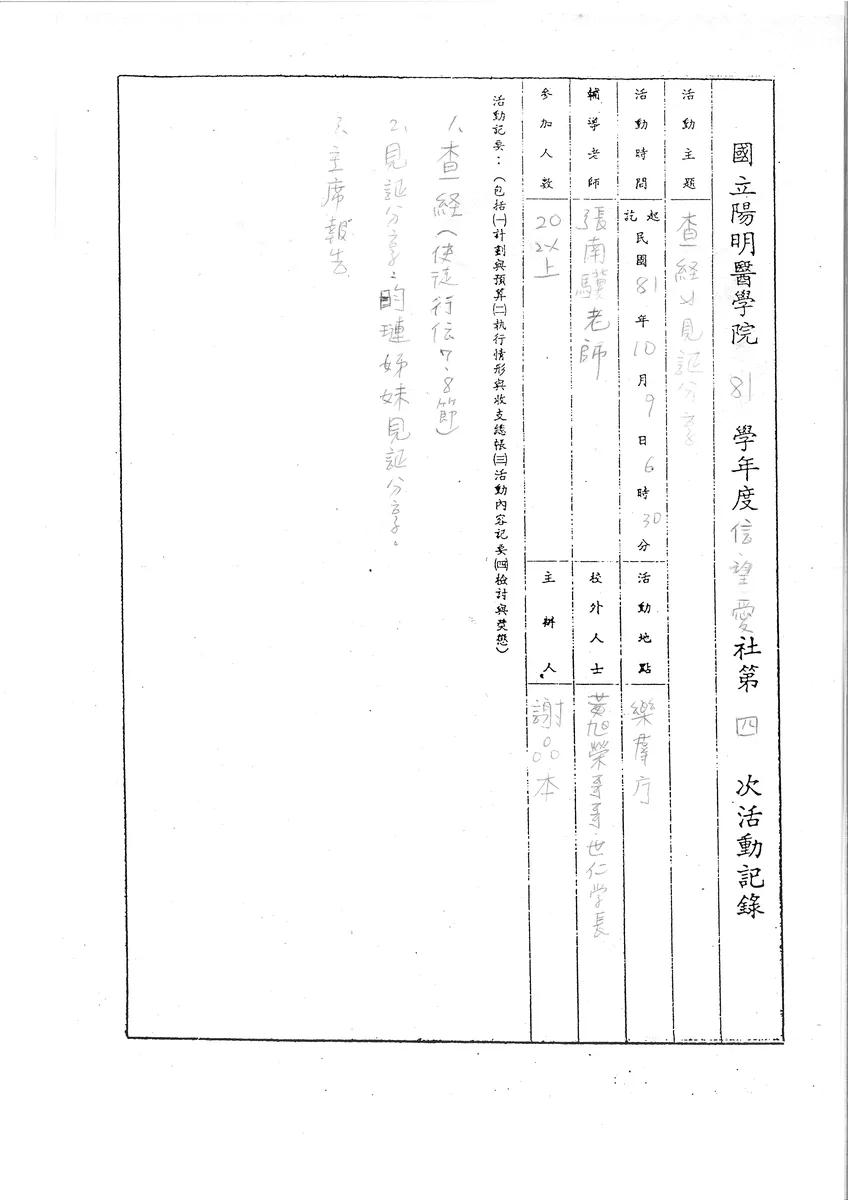 國立陽明醫學院 81 學年度信望愛社第 四 次活動記錄
活動主題 查経 見証分享
活動時間 起訖民國 81 年 10 月 9 日 6 時 30 分 活動地點 楽群厅
輔導老師 張南驥老師 校外人士 黃旭榮哥哥、世仁学長
參加人數 20以上 主辦人 謝品本
活動記要：（包括㈠計劃與預算㈡執行情形與收支總帳㈢活動內容記要㈣檢討與獎懲）
1、查経（使徒行伝7、8節）
2、見証分享：昀璉姊妹見証分享。
3、主席報告